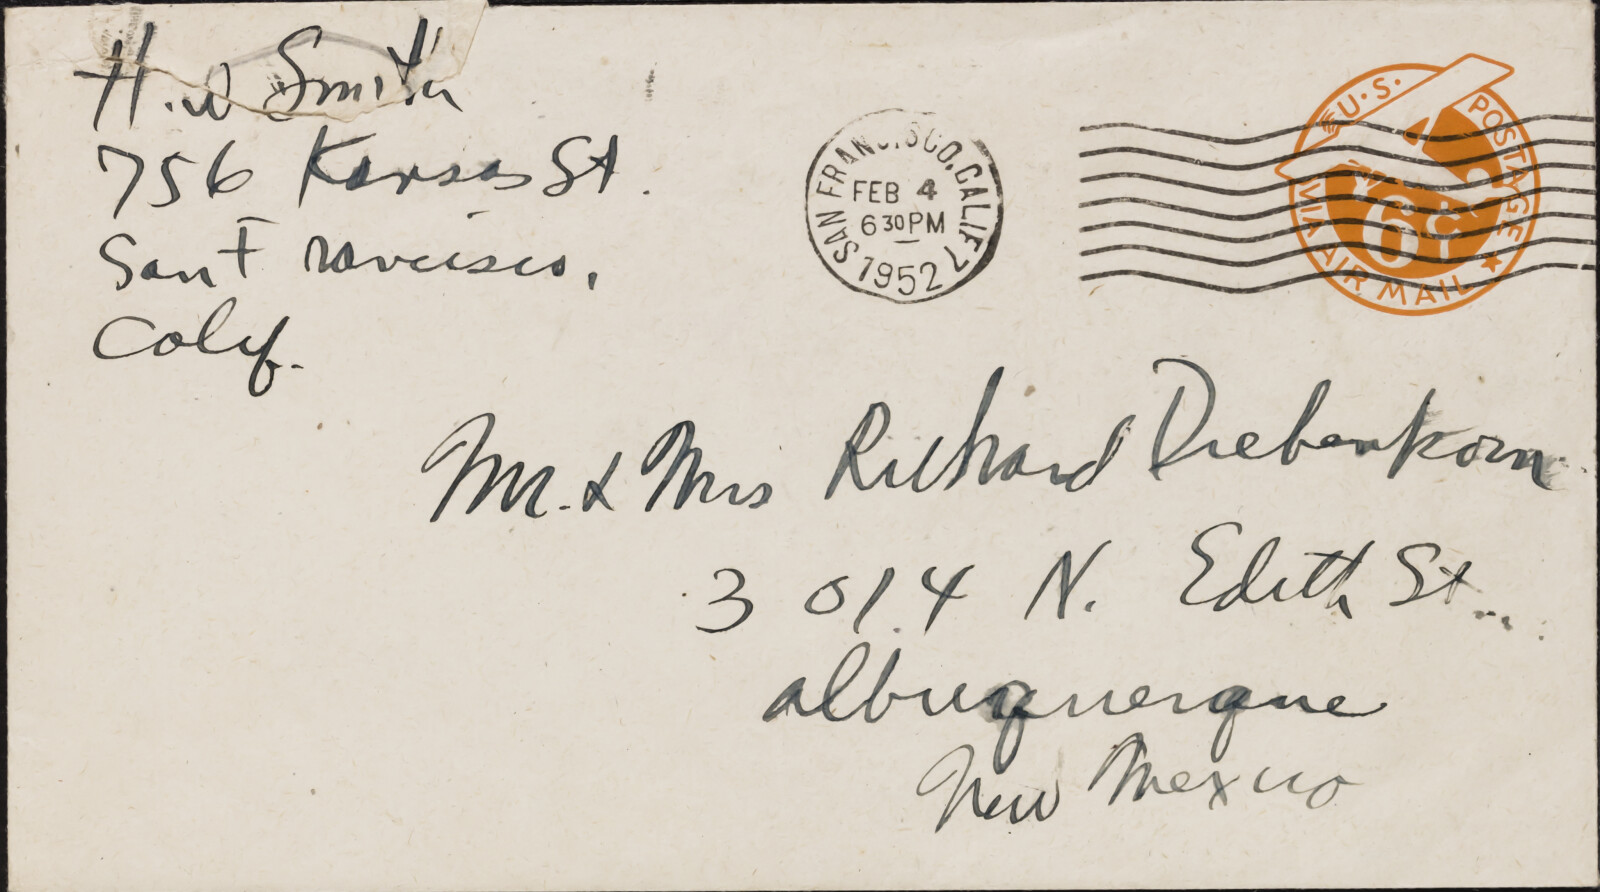 H.W Smith
756 Kansas St.
San Francisco,
Calif.
SAN FRANCISCO, CALIF. 7
FEB 4
6 30 PM
1952
U.S. POSTAGE
6¢
VIA AIR MAIL
Mr. & Mrs Richard Diebenkorn
3014 N. Edith St.
Albuquerque
New Mexico